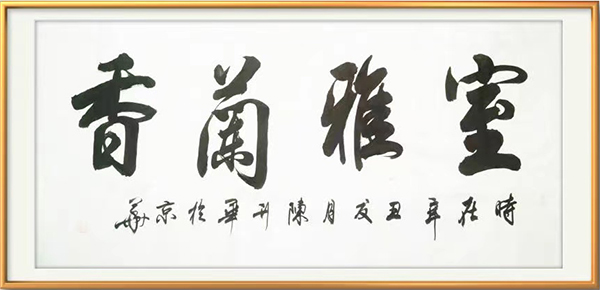 室雅蘭香
時在辛丑月陳華於京華